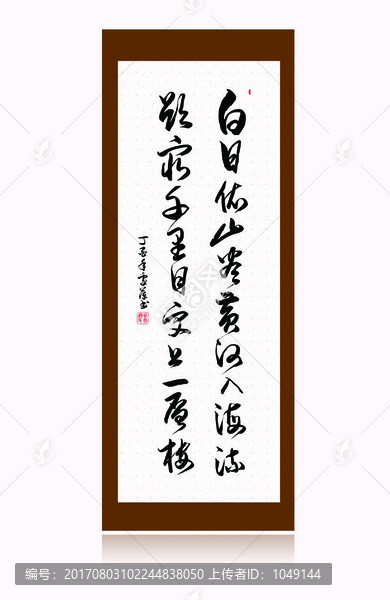 白日依山尽黄河入海流
欲穷千里目更上一层楼
丁酉年
编号：20170803102244838050 上传者ID：1049144